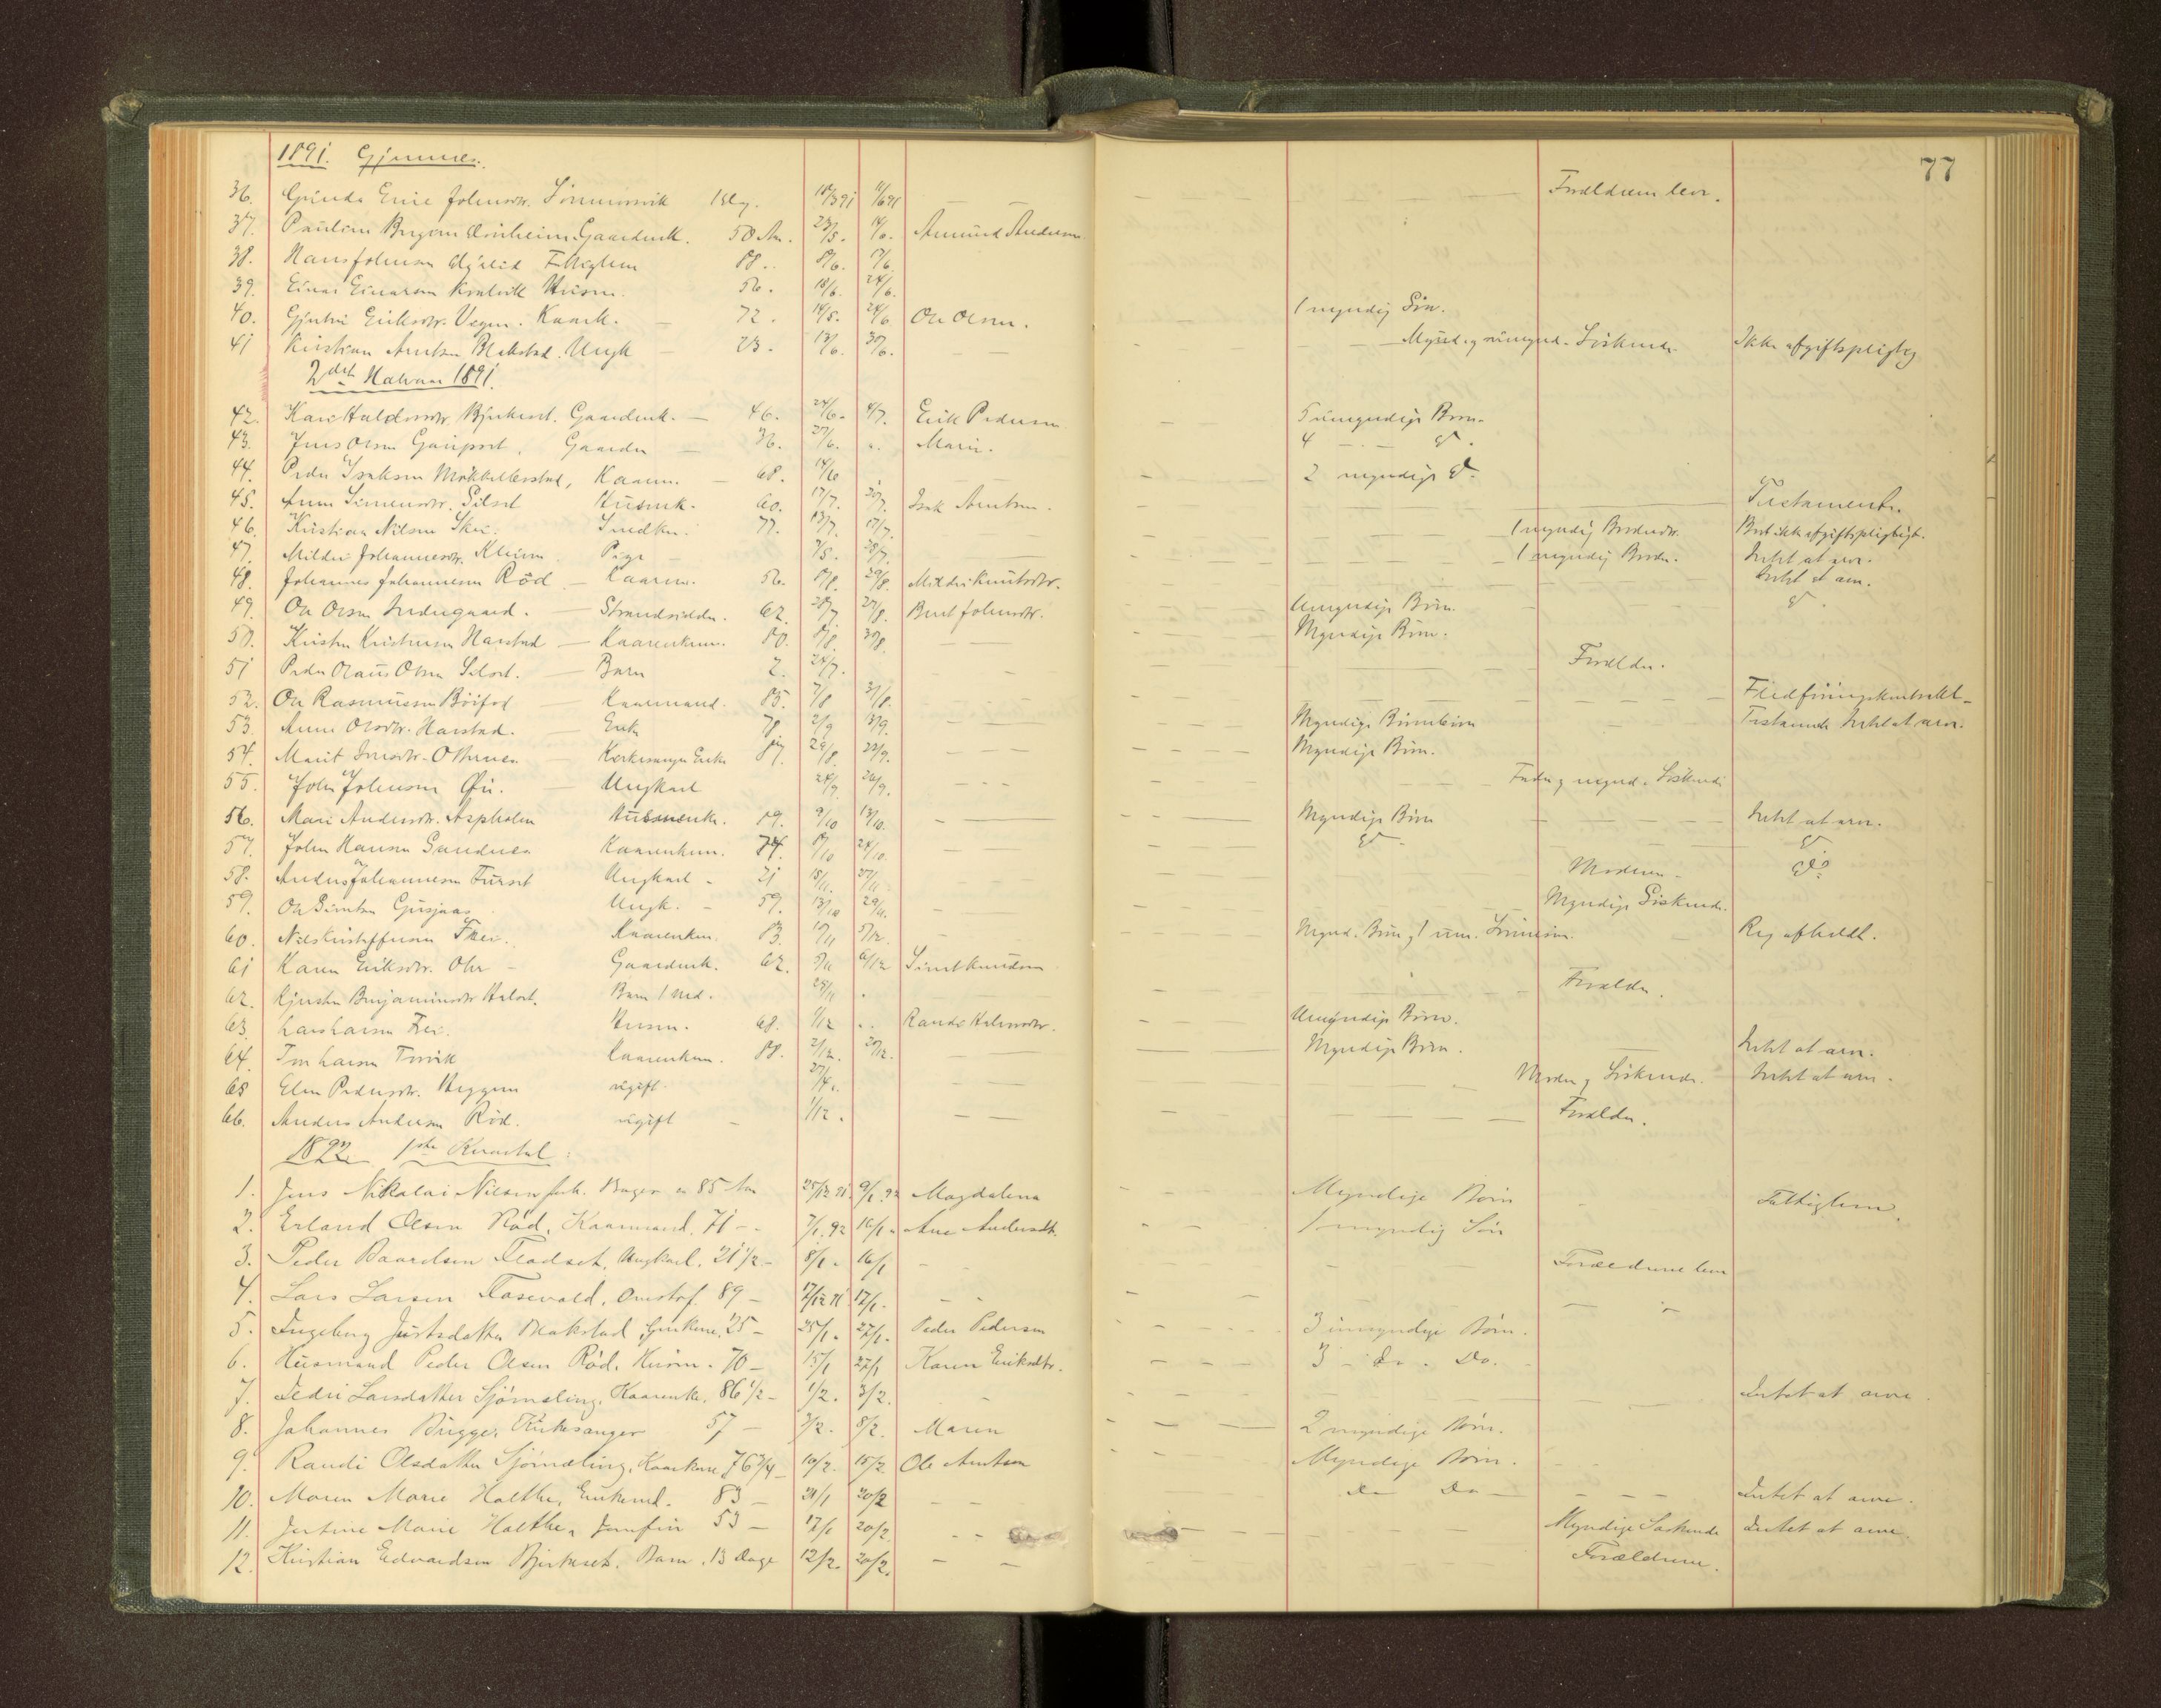 77
1891. Gjemnes.
36. Gunda Eline Johnsdtr. 18/3 91 11/6 91 — — — — Forældrene lever.
37. Pauline Gaardmk. 50 Aar. 23/5. 14/6. Amund Andersen
38. Hans Johnsen Fattiglem 88. 8/6. 17/6.
39. Einar Einarsen Husm. 56. 18/6. 24/6.
40. Gjertru Eriksdtr. Vaagen. Kaark. — 72. 14/5. 24/6 Ole Olsen. — 1 myndig Søn.
41 Kristian Arntsen Blakstad. Ungk — 23. 13/6. 30/6. — — Mynd. og umynd. Søskende Ikke afgiftspligtig
2det Halvaar 1891.
42. Kari Halvorsdtr. Bjerkeset. Gaardmk. — 46. 24/6. 4/7. Erik Pedersen — 5 umyndige Børn.
43. Jens Olsen Gaupset. Gaardm — 36. 27/6. ". Marit. 4 — . — do.
44. Peder Isaksen Kaarm. — 68. 14/6 — 2 myndige do.
45. Anne Simensdtr. Silset Husmk. 60. 17/7. 20/7. Isak Arntsen. — Testamente.
46. Kristian Nilsen Skei. Snedker. 77. 13/7. 17/7. — 1 myndig Broderdtr. Boet ikke afgiftspligtigt.
47. Mildri Johannesdtr. Pige — 7/5. 28/7. — 1 myndig Broder. Intet at arve.
48. Johannes Johannesen Röd — Kaarm. 56. 8/8. 29/8. Mildri Knutsdtr. Intet at arve.
49. Ole Olsen Indergaard. — Strandsidder. 62. 28/7. 27/8. Beret Johnsdtr. — Umyndige Børn. do.
50. Kristen Kristensen Harstad — Kaarenkem. 80. 8/8. 30/8. — — Myndige Børn.
51 Peder Olaus Olsen Silset. — Barn 2. 24/7. — — Forældre.
52. Ole Rasmussen — Kaarmand. 85. 7/8 31/8. — — Flødføringskontrakt
53. Anne Olsdtr. Harstad. — Enke 78 2/9 13/9. — — Myndige Børnebørn — Testamente Intet at arve.
54. Marit Kirkesanger Enke 87. 29/8. 22/9. — — Myndige Børn.
55. John Johnsen Øre. — Ungkarl 24/9. — — — Fader og mynd. Søskende
56. Mari Andersdtr. Aspholm Husmenke. 89. 9/10 13/10. — — Myndige Børn — Intet at arve.
57. John Hansen Sandnes Kaarenkem. 74. 24/10. — — do. do
58. Anders Johannesen Furset Ungkarl — 21 15/11. 27/11 Moderen — do
59. Ole Sivertsen Ungk. — 59. 13/10 29/11. — Myndige Søskende.
60. Nils Kristoffersen Frei. Kaarenkem. 83. 5/12. — Mynd. Børn og 1 um. — Reg afholdt.
61 Karen Eriksdtr. — Gaardmk. 62. 5/11 6/12 Sivert Knudsen
62. Kjersten Benjaminsdtr Barn 1 Md. 25/11 " — — Forældre.
63. Lars Larsen Frei. Husm. 68. 1/12 ". Randi — Umyndige Børn.
64. Iver Larsen Torvik Kaarenkem. 88. 2/12. 20/12. — Myndige Børn. — Intet at arve.
65 Elen Pedersdtr. Heggem ugift. 27/4. — — Moder og Søskende. Intet at arve.
66. Anders Andersen Röd. ugift — 1/12. — — Forældre.
1892. 1ste Kvartal.
1. Jens Nikolai Nilsen 85 Aar 25/12 91. 9/1. 92 Magdalena — Myndige Børn — Fattiglem.
2. Erland Olsen Röd, Kaarmand, 71 — 7/1. 92 16/1 — Ane Andersdtr. 1 myndig Søn
3. Peder Baardsen Fladset, Ungkarl. 21 1/2 — 8/1. 16/1 — — Forældrene lever
4. Lars Larsen Fossevold, 89 — 17/12 91. 17/1. — —
5. Ingeborg Justsdatter Blakstad, 25 — 25/1. 27/1. Peder Pedersen — 3 umyndige Børn.
6. Husmand Peder Olsen Röd, Husm. 70 — 15/1 27/1 Karen Eriksdtr. — 3 — do. Do.
7. Larsdatter Sjömæling, Kaarenke. 86 1/2 — 1/2. 3/2. — — Intet at arve.
8. Johannes Brügger, Kirkesanger 57 — 3/2. 8/2. Maren — 2 myndige Børn.
9. Randi Olsdatter Sjömæling, Kaarkone 76 3/4 — 10/2. 15/2. Ole Arntsen — Myndige Børn.
10. Maren Marie Holthe, 83 — 31/1 20/2 — — Do Do — — Intet at arve.
11. Jertine Marie Holthe, Jomfru 53 — 17/1 20/2. — — Myndige Søskende Intet at arve.
12. Kristian Edvardsen Bjerkeset. Barn. 13 Dage 12/2. 20/2. — — Forældrene.